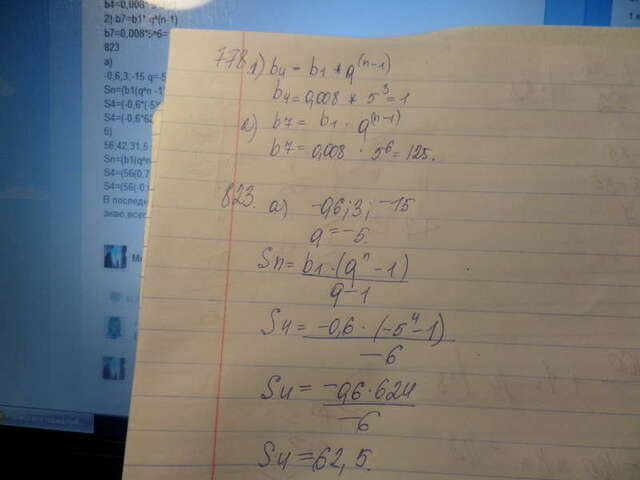 b4=0,008*5^3=1
2) b7=b1* q^(n-1)
b7=0,008*5^6=
823
а)
-0,6;3;-15 q=-5
Sn=(b1(q^n -1
S4=(-0,6*(-5)^
S4=(-0,6*62
б)
56,42,31,5
Sn=(b1(q^n
S4=(56(0,7
S4=(56(-0
В последн
знаю,все
778. 1) b4 = b1 * q^(n-1)
b4 = 0,008 * 5^3 = 1
2) b7 = b1 · q^(n-1)
b7 = 0,008 · 5^6 = 125.
823. а) -0,6; 3; -15
q = -5.
Sn = b1·(q^n - 1)
q-1
S4 = -0,6 · (-5^4 - 1)
-6
S4 = -0,6 · 624
-6
S4 = 62,5.